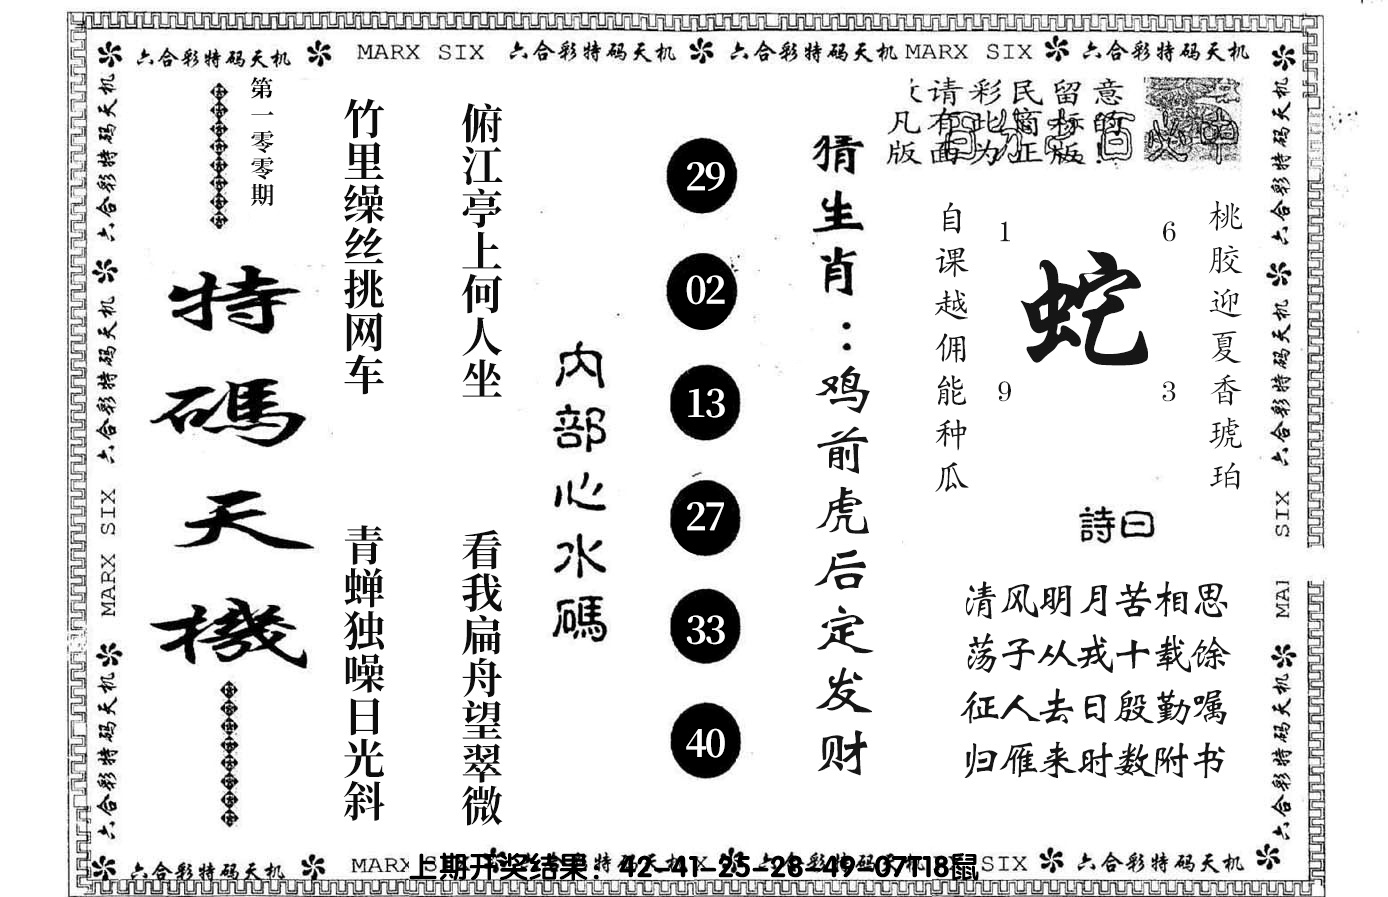 六合彩特码天机 MARX SIX 六合彩特码天机 六合彩特码天机 MARX SIX 六合彩特码天机
六合彩特码天机 六合彩特码天机 MARX SIX 六合彩特码天机
第一零零期
特碼天機
竹里缲丝挑网车
青蝉独噪日光斜
俯江亭上何人坐
看我扁舟望翠微
内部心水碼
29
02
13
27
33
40
猜生肖：鸡前虎后定发财
请彩民留意
凡有此商标的
版面为正版!
自课越佣能种瓜
1
6
蛇
9
3
桃胶迎夏香琥珀
詩曰
清风明月苦相思
荡子从戎十载馀
征人去日殷勤嘱
归雁来时数附书
六合彩特码天机 六合彩特码天机 SIX
六合彩特码天机
六合彩特码天机 MARX
上期开奖结果：42-41-25-28-49-07T18鼠
SIX 六合彩特码天机